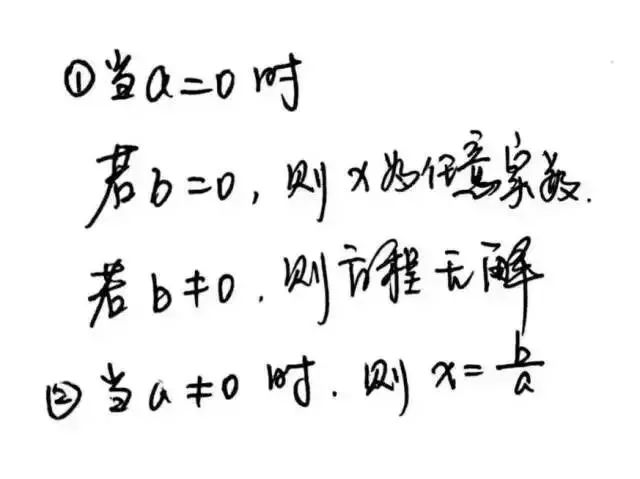 ①当a=0时
若b=0,则x为任意实数.
若b≠0,则方程无解
②当a≠0时.则x=b/a